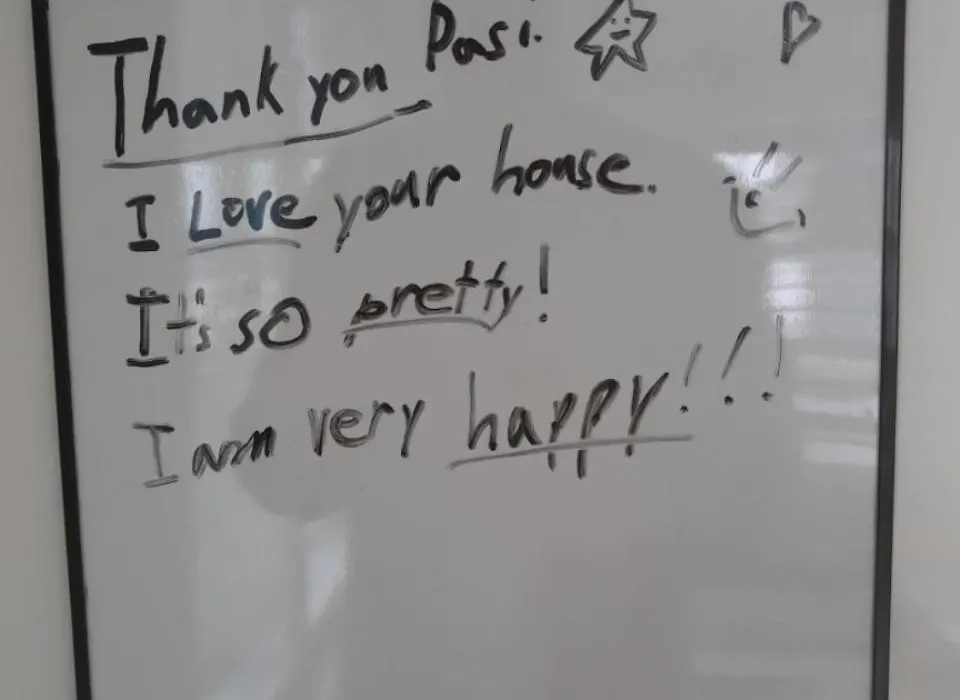 Thank you Pasi.
I Love your house.
It's so pretty!
I am very happy!!!